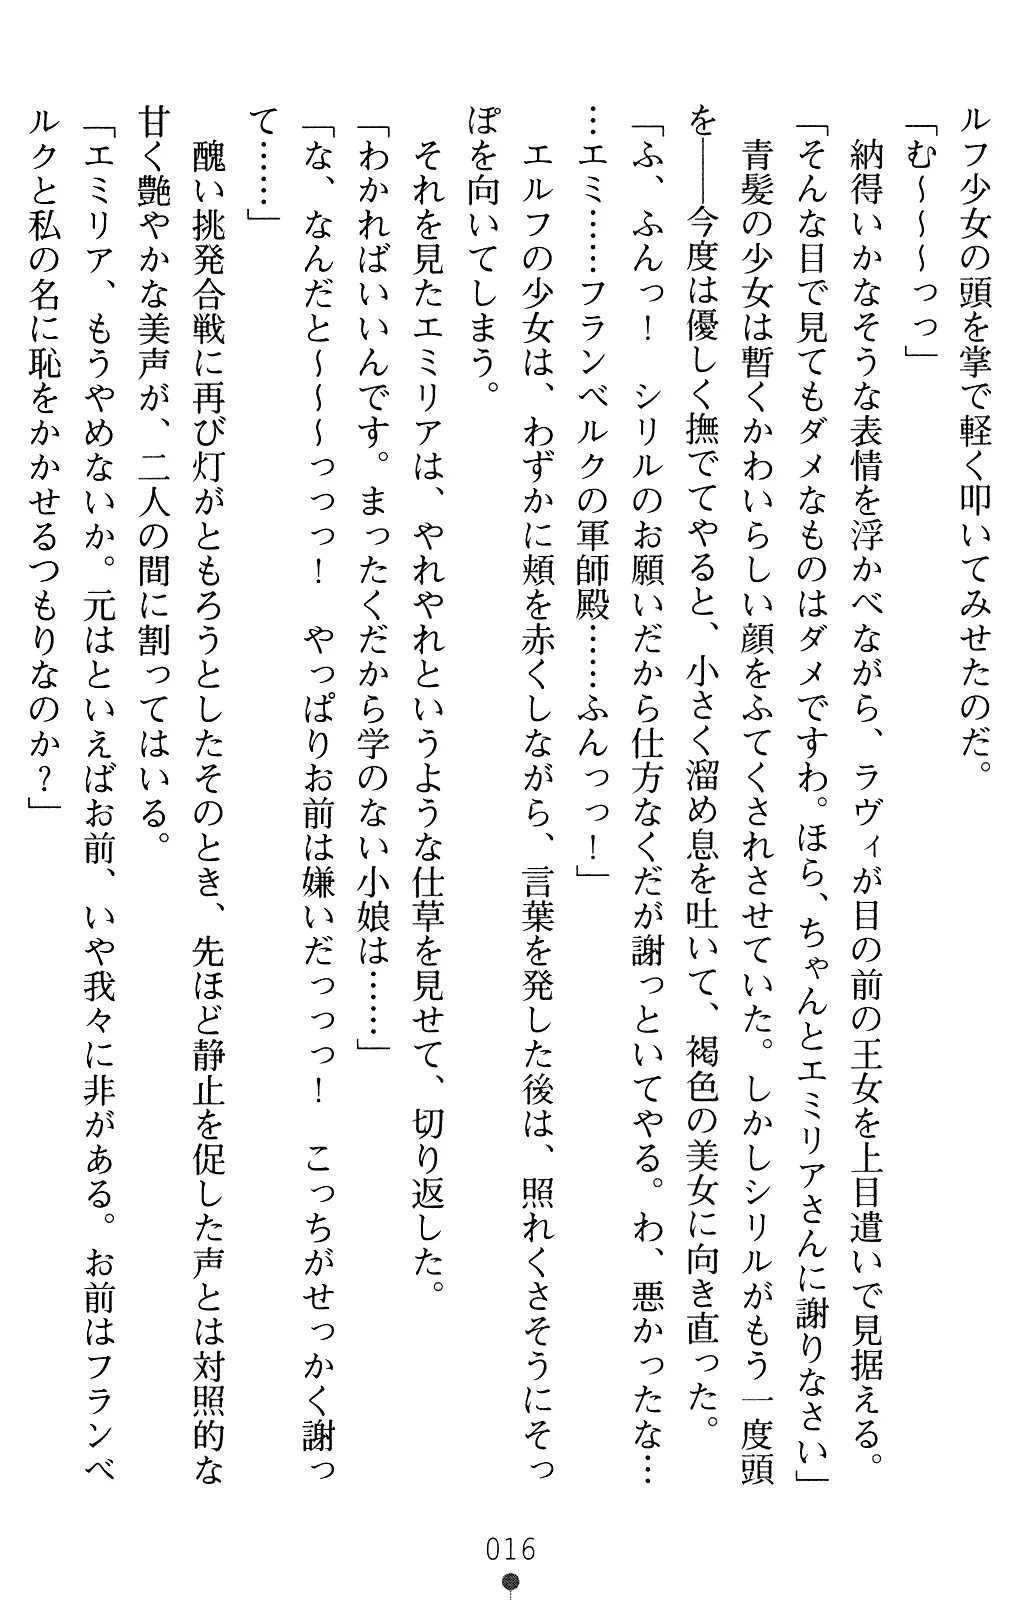 ルフ少女の頭を掌で軽く叩いてみせたのだ。
「む～～～っっ」
　納得いかなそうな表情を浮かべながら、ラヴィが目の前の王女を上目遣いで見据える。
「そんな目で見てもダメなものはダメですわ。ほら、ちゃんとエミリアさんに謝りなさい」
　青髪の少女は暫くかわいらしい顔をふてくされさせていた。しかしシリルがもう一度頭
を――今度は優しく撫でてやると、小さく溜め息を吐いて、褐色の美女に向き直った。
「ふ、ふんっ！　シリルのお願いだから仕方なくだが謝っといてやる。わ、悪かったな…
…エミ……フランベルクの軍師殿……ふんっっ！」
　エルフの少女は、わずかに頬を赤くしながら、言葉を発した後は、照れくさそうにそっ
ぽを向いてしまう。
　それを見たエミリアは、やれやれというような仕草を見せて、切り返した。
「わかればいいんです。まったくだから学のない小娘は……」
「な、なんだと～～～っっっ！　やっぱりお前は嫌いだっっっ！　こっちがせっかく謝っ
て……」
　醜い挑発合戦に再び灯がともろうとしたそのとき、先ほど静止を促した声とは対照的な
甘く艶やかな美声が、二人の間に割ってはいる。
「エミリア、もうやめないか。元はといえばお前、いや我々に非がある。お前はフランベ
ルクと私の名に恥をかかせるつもりなのか？」
016